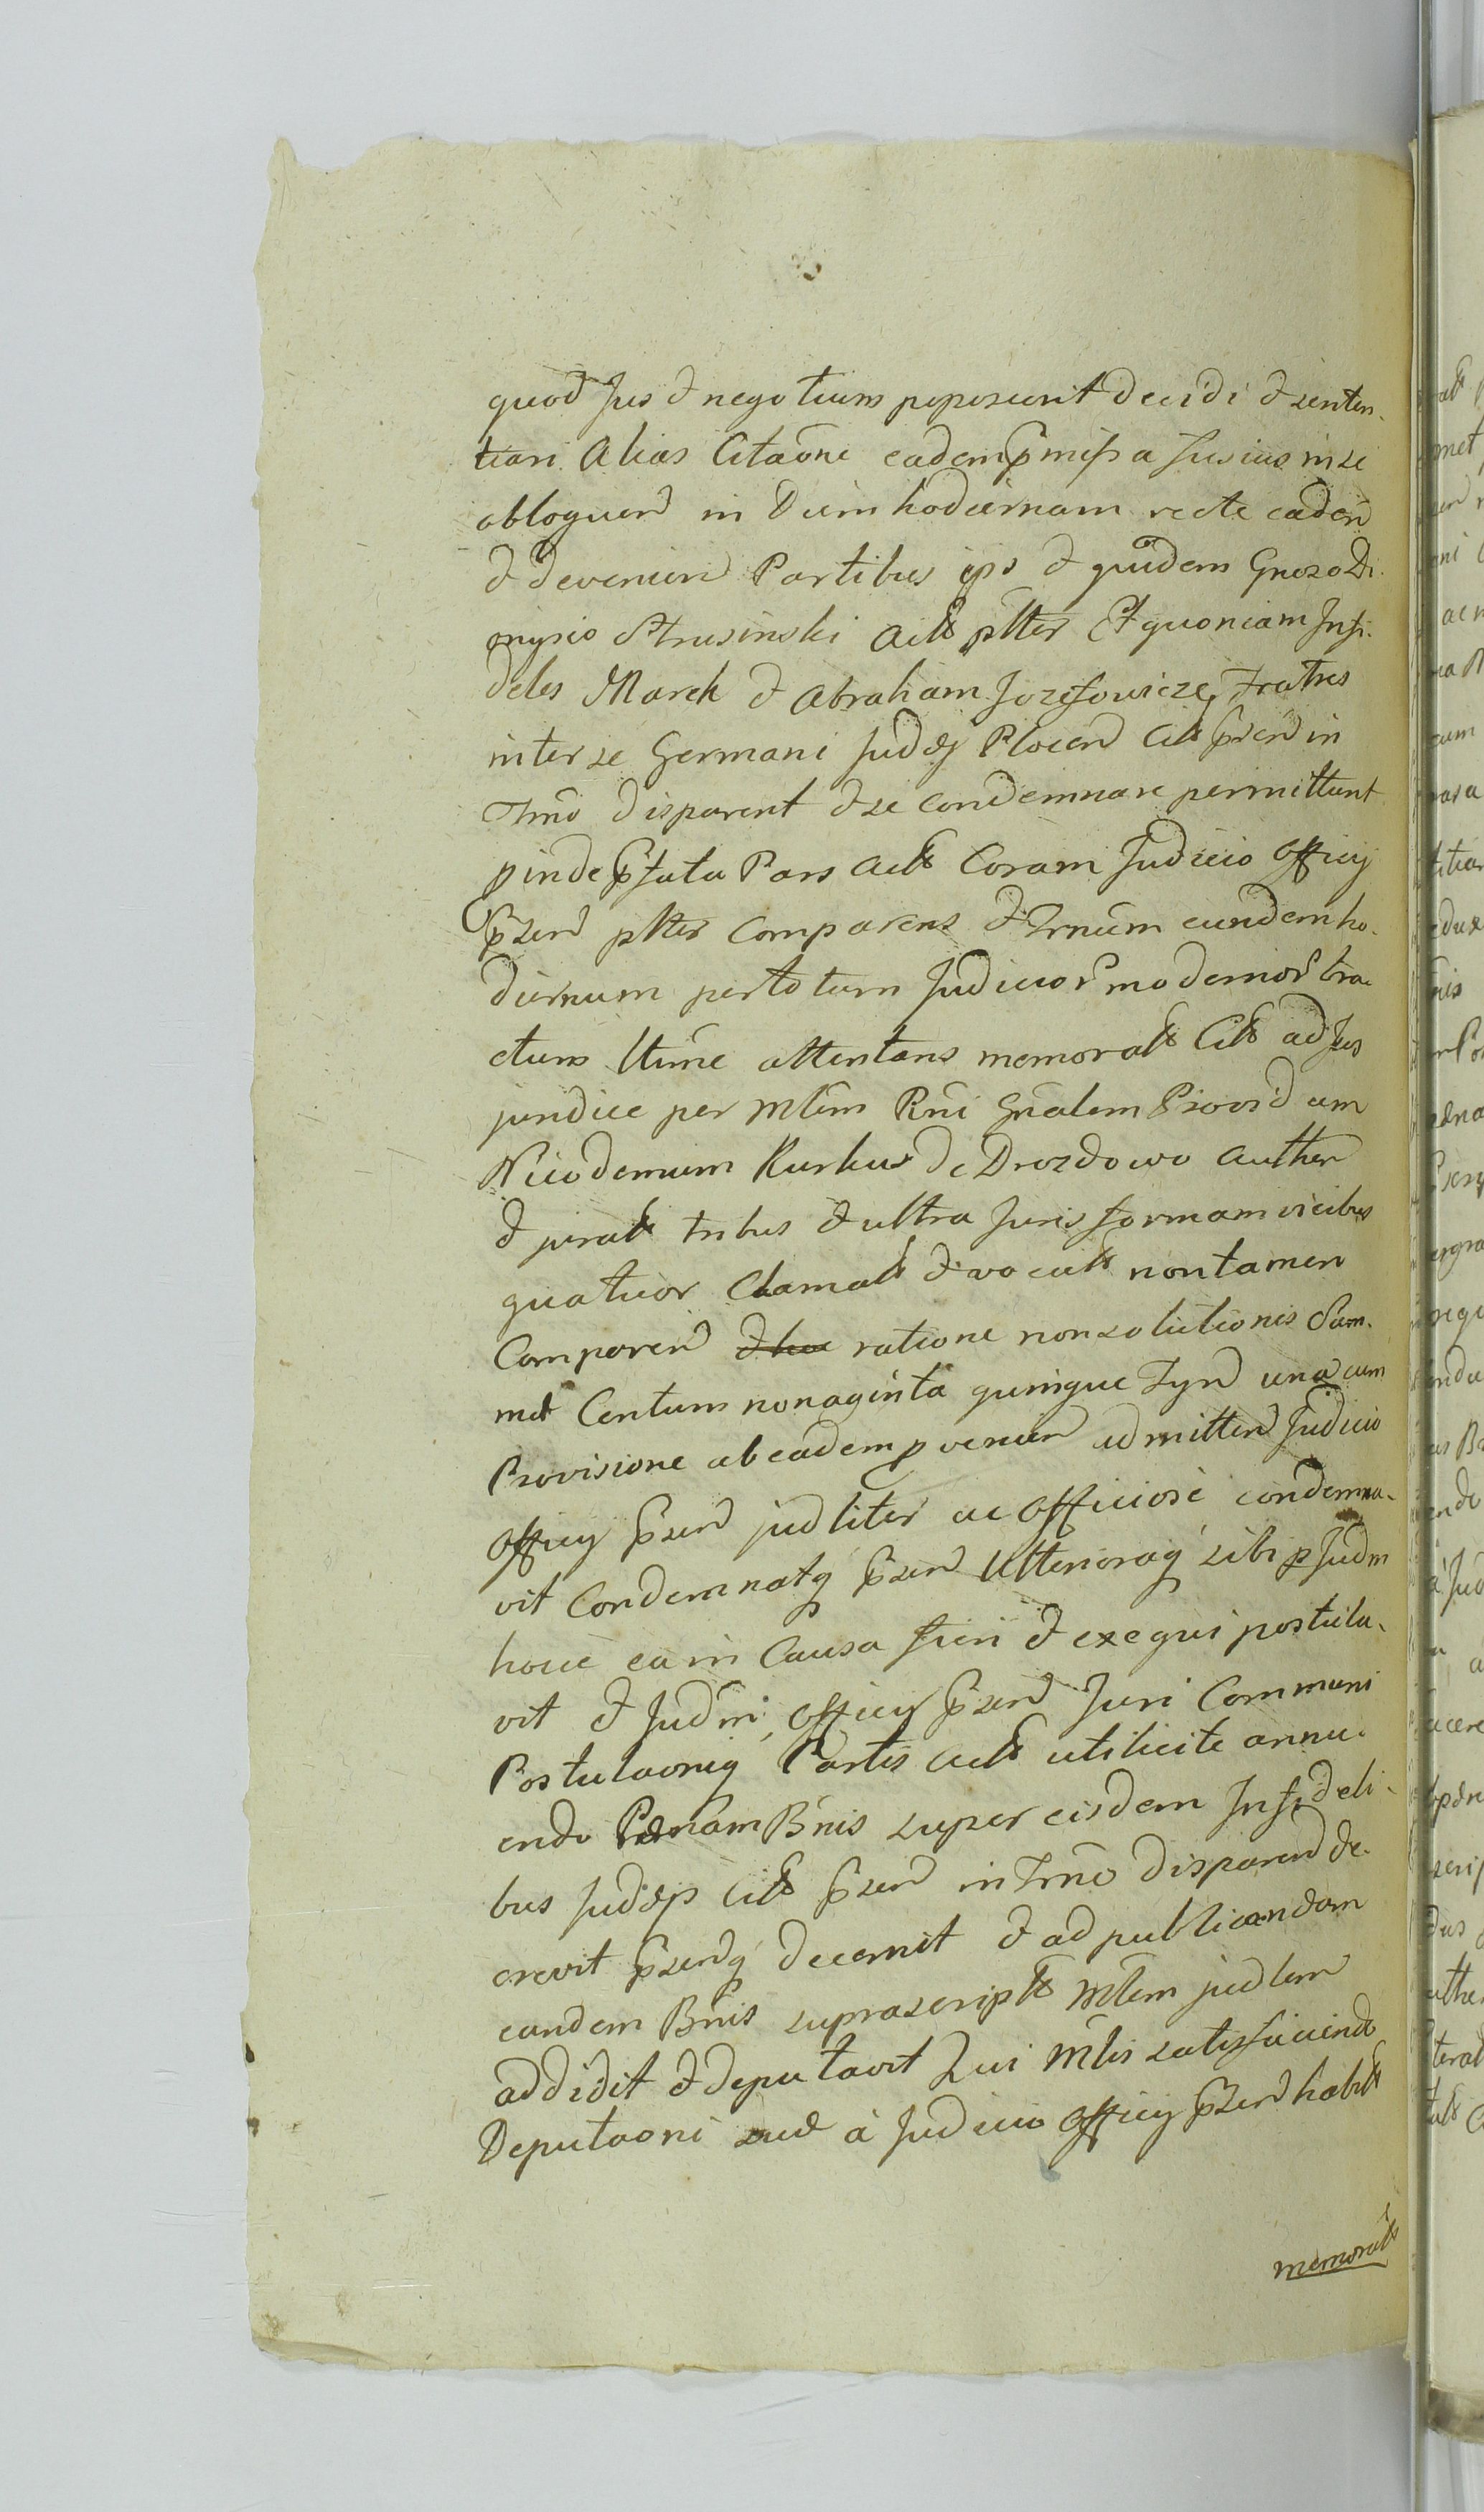 quod Jus & negotium poposcerit decidi & senten-
tiari. Alias Citaõne eadem pmissa fusius in se
obloquen in Diem hodiernam recte caden
& devenien Partibus ips & quidem Gnoso Di-
onysio Strusinski Actt plter Et quoniam Infi-
deles Marek & Abraham Jozefowicze Fratres
inter se Germani Judæj Plocen Citt psen in
Tmõ disparent & se condemnare permittunt
pinde pfata Pars Actt Coram Judicio Officij
psen plter Comparens & Trnum eundem ho-
diernum per totum Judicior modernor tra-
ctum ltime attentans memoratt Citt ad Jus
jundice per Mlem Rni Gnalem Provid um
Nicodemum Kurkus de Drozdowo authen
& juratt tribus & ultra Juris formam vicibus
quatuor Clamatt & vocatt non tamen
Comparen ratione non solutionis Sum-
mæ Centum nonaginta quinque Tyn una cum
Provisione ab eadem pvenien admitten Judicio
Officij psen judliter ac Officiose condemna-
vit Condemnatq psen Ulterioraq sibi p Judm
hocce ea in Causa fieri & exequi postula-
vit & Judm Officij psen Juri Communi
Postulaoniq Partis Actt utilicite annu-
endo Pænam Bnis super eisdem Infideli-
bus Judæis Citt psen in Tmõ disparen de-
crevit psenq decernit & ad publicandam
eandem Bnis suprascriptt Mlem judlem
addidit & deputavit Qui Mlis satisfaciendo
Deputaoni suæ à Judicio Officij psen habitt
memoratt